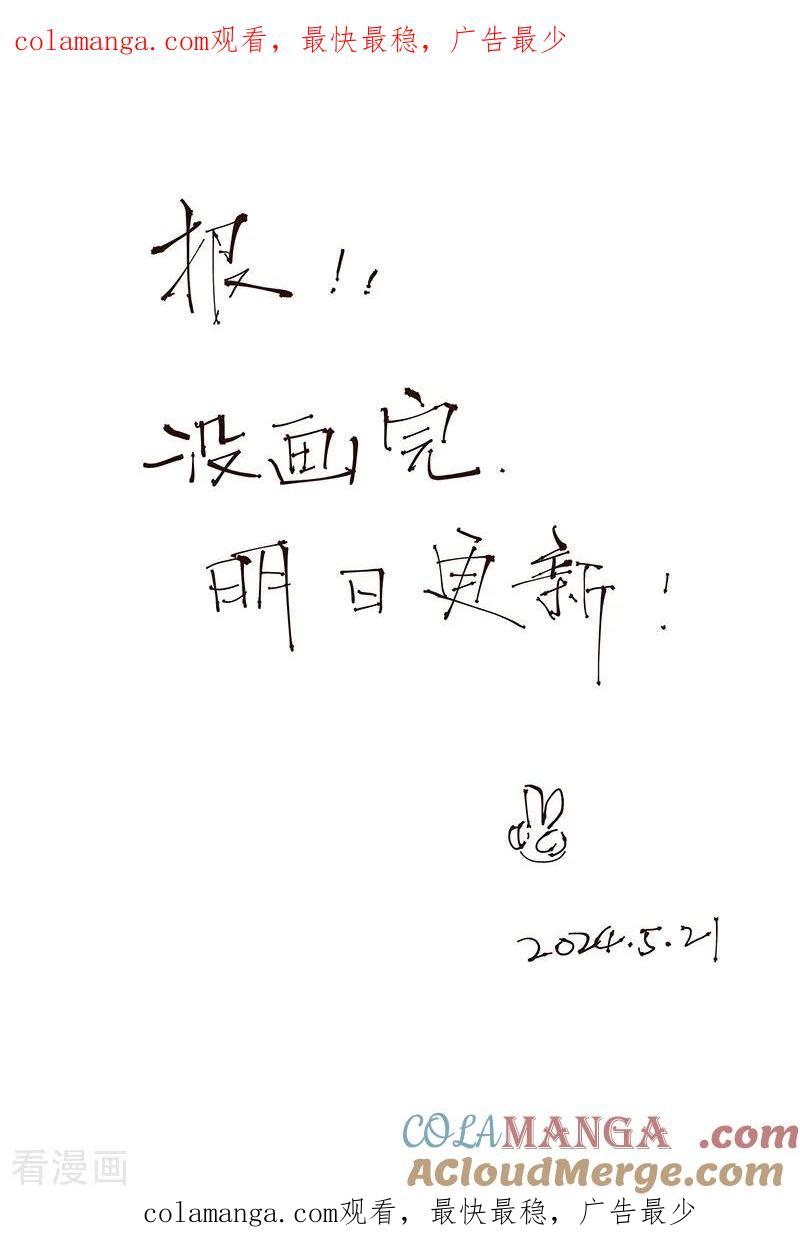 colamanga.com观看，最快最稳，广告最少
报！！
没画完.
明日更新！
2024.5.21
COLAMANGA.com
看漫画
ACloudMerge.com
colamanga.com观看，最快最稳，广告最少